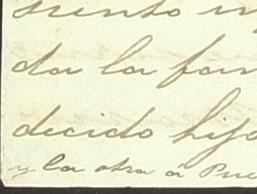 siento in
da la fam
decido hijo
y la otra á Pue